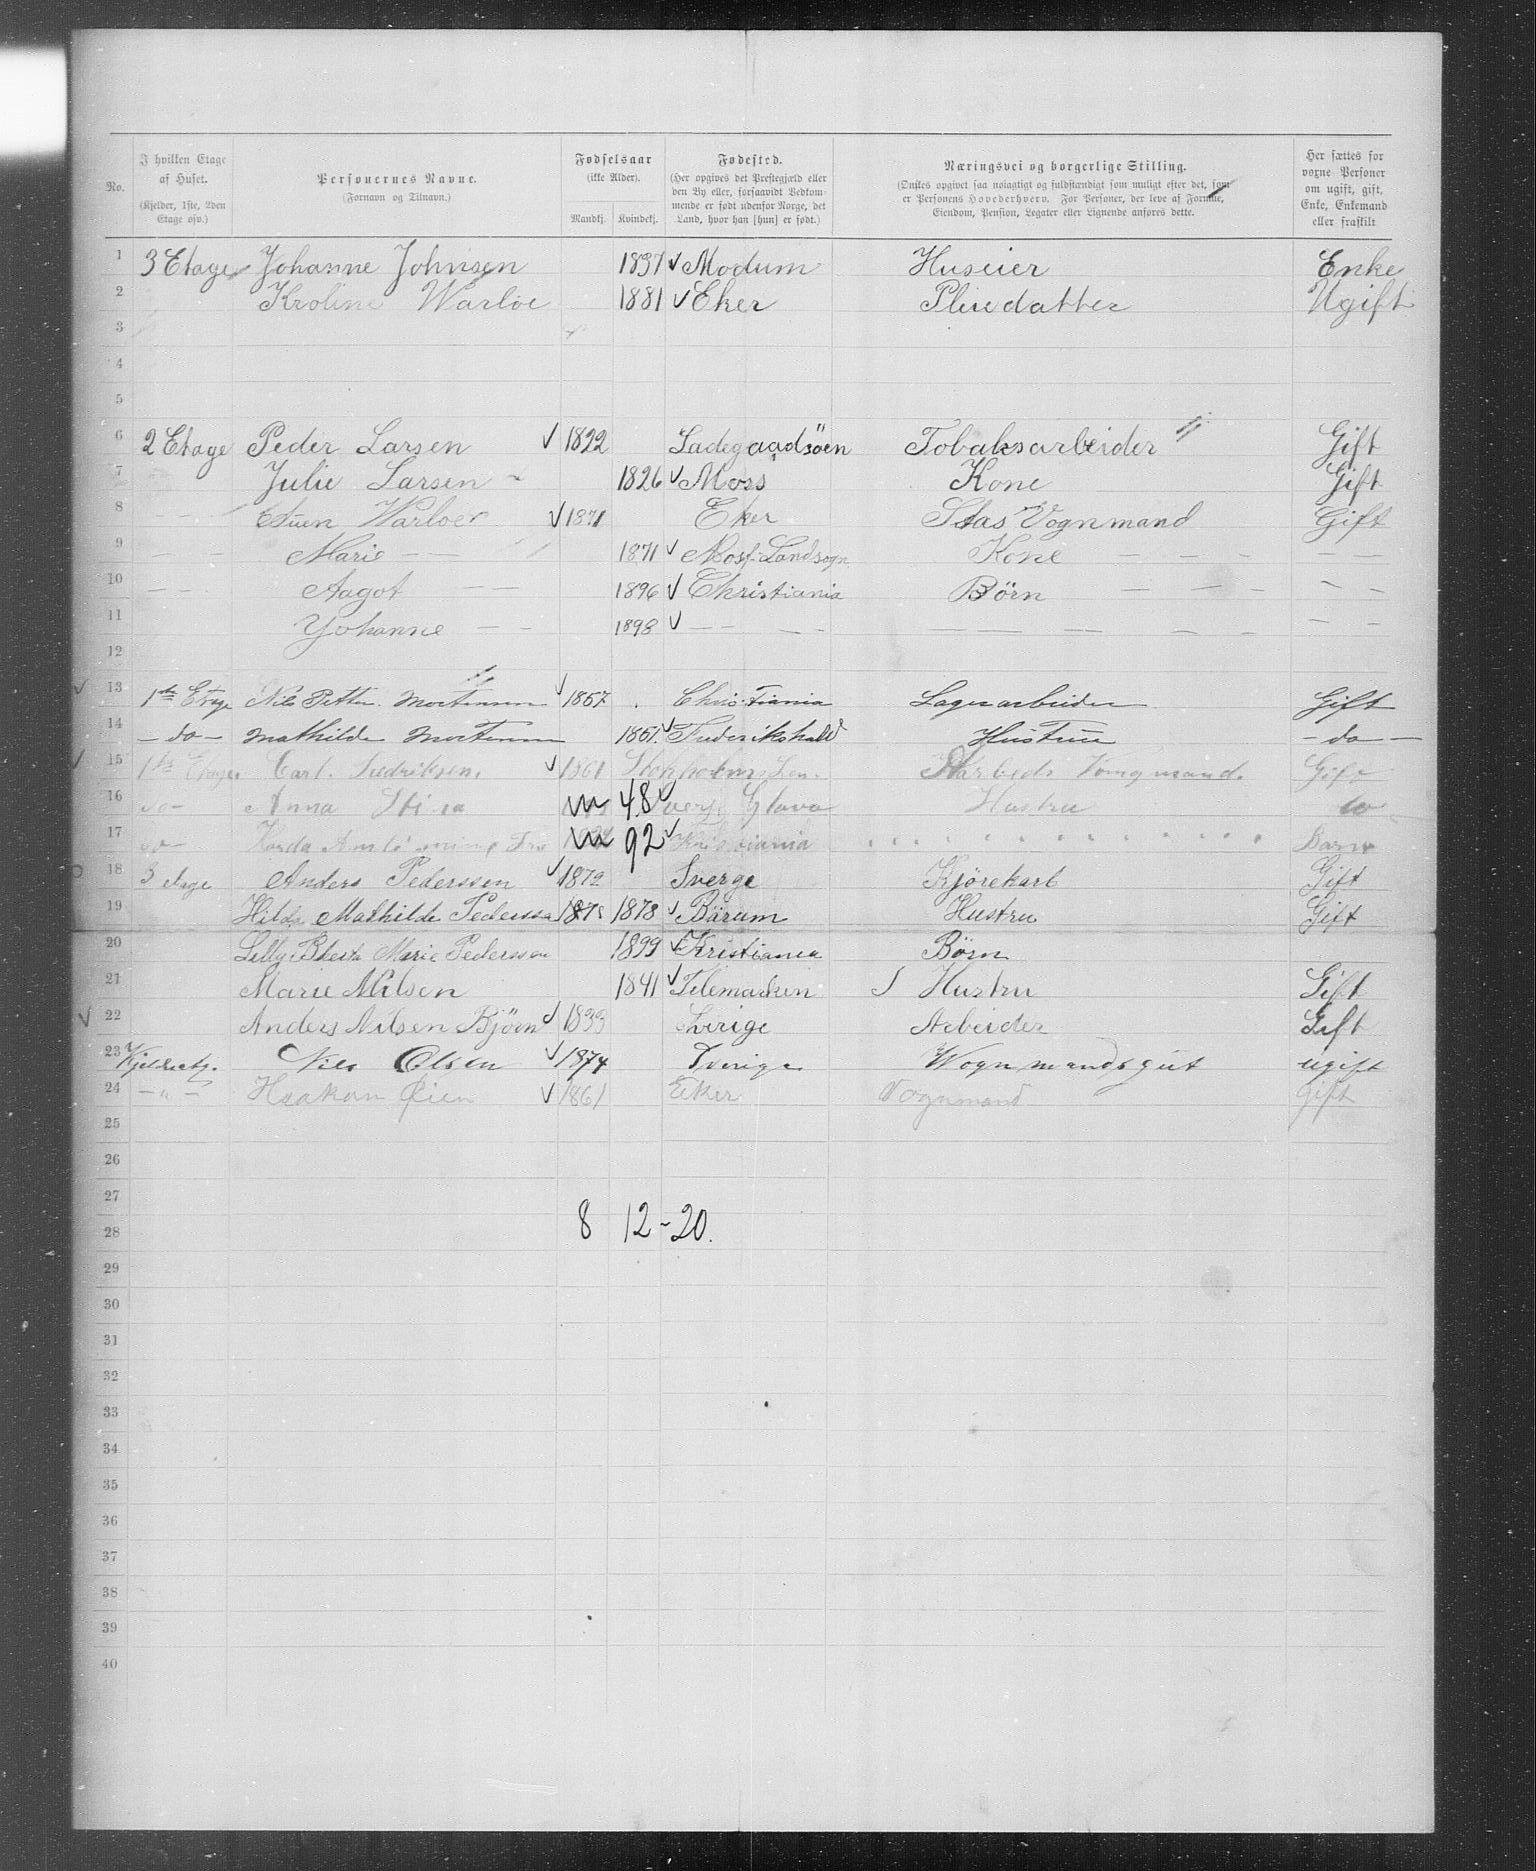 No.
I hvilken Etage af Huset. (Kjelder, 1ste, 2den Etage osv.)
Personernes Navne. (Fornavn og Tilnavn.)
Fødselsaar (ikke Alder). Mandkj. Kvindekj.
Fødested. (Her opgives det Prestegjæld eller den By eller, forsaavidt Vedkommende er født udenfor Norge, det Land, hvor han [hun] er født.)
Næringsvei og borgerlige Stilling. (Ønskes opgivet saa nøiagtigt og fuldstændigt som muligt efter det, som er Personens Hovederhverv. For Personer, der leve af Formue, Eiendom, Pension, Legater eller Lignende anføres dette.
Her sættes for voxne Personer om ugift, gift, Enke, Enkemand eller fraskilt
1 3 Etage Johanne Johnsen 1837 Modum Huseier Enke
2 Kroline Warloe 1881 Eker Pliedatter Ugift
3
4
5
6 2 Etage Peder Larsen 1822 Ladegaadsöen Tobaksarbeider Gift
7 Julie Larsen 1826 Moss Kone Gift
8 — — Warloe 1871 Eker Vognmand Gift
9 — — Marie — — 1871 Landsogn Kone — — — — —
10 — — Aagot — — 1896 Christiania Börn — — — — —
11 Johanne — — 1898 — — — — — — — — — — —
12
13 1ste Etage Nils Petter Mortensen 1857 Christiania Lagerarbeider Gift
14 — do — Mathilde Mortensen 1851 Frederikshald Hustru — do —
15 1ste Etage Carl Fredriksen 1861 Stokholms Len. Arbeds Gift
16 do — Anna Stina 48 Glava Hustru do
17 do — 92 Kristiania Barn
18 3 etage Anders Pederssen 1872 Sverge Kjörekarl Gift
19 Hilda Mathilde Pederssen 1878 1878 Bärum Hustru Gift
20 Lilly Marie Pederssen 1899 Kristiania Börn
21 Marie Nilsen 1841 Telemarken Hustru Gift
22 Anders Nilsen Björn 1833 Sverige Arbeider Gift
23 Nils Olsen 1874 Sverige Wognmandsgut ugift
24 — " — Haakon Öien 1861 Eker Vognmand gift
25
26
27
8 12 - 20.
28
29
30
31
32
33
34
35
36
37
38
39
40